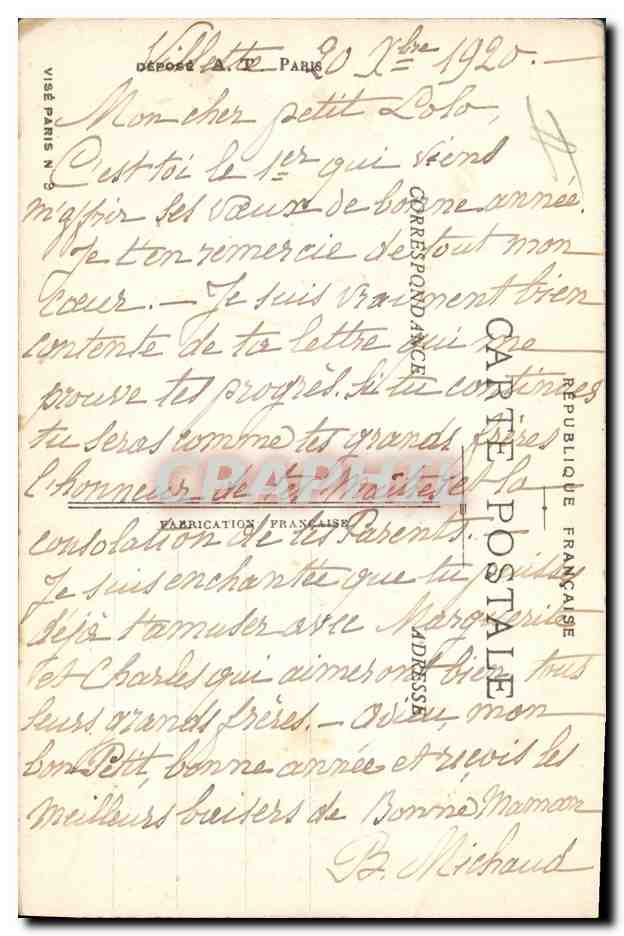 Villette 30 Xbre 1920. —
DÉPOSÉ A. T. PARIS
VISÉ PARIS N° 9
Mon cher petit Lolo,
C'est toi le 1er qui viens
m'offrir ses vœux de bonne année.
Je t'en remercie de tout mon
cœur. — Je suis vraiment bien
contente de ta lettre qui me
prouve tes progrès. Si tu continues
tu seras comme tes grands frères
l'honneur de tes Maîtres et la
consolation de tes Parents. —
Je suis enchantée que tu puisses
déjà t'amuser avec Marguerite
et Charles qui aimeront bien tous
leurs grands frères. — Adieu, mon
bon Petit, bonne année et reçois les
meilleurs baisers de Bonne Maman
B. Michaud
FABRICATION FRANÇAISE
CORRESPONDANCE
ADRESSE
CARTE POSTALE
RÉPUBLIQUE FRANÇAISE
CPAPHIL